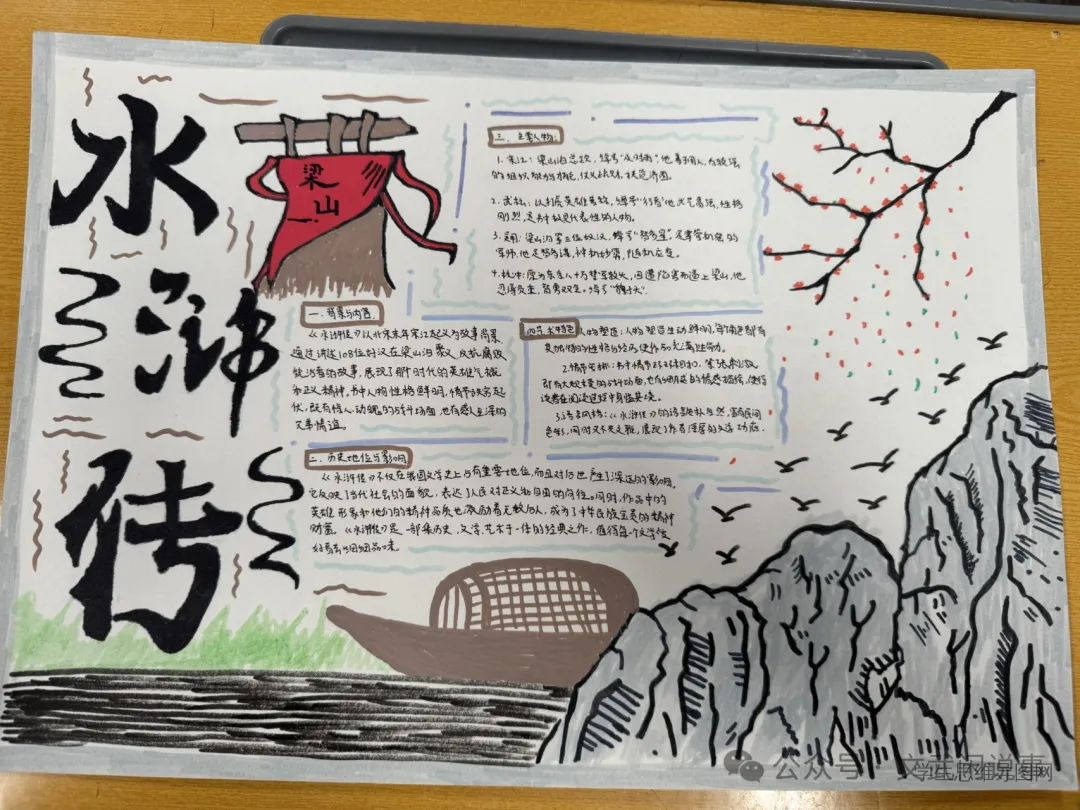 水浒传
梁
山
一、背景与内容
《水浒传》以北宋末年宋江起义为故事背景
通过讲述108位好汉在梁山泊聚义、反抗腐败
统治者的故事,展现了那个时代的英雄气概
和正义精神。书中人物性格鲜明,情节跌宕起
伏,既有惊人动魄的战斗场面,也有感人至深的
兄弟情谊。
二、历史地位与影响
《水浒传》不仅在我国文学史上占有重要地位,而且对后世产生了深远的影响,
它反映了当代社会的面貌,表达了人民对正义和自由的向往。同时,作品中的
英雄形象和他们的精神品质也激励着无数后人,成为了中华民族宝贵的精神
财富。《水浒传》是一部集历史,文学,艺术于一体的经典之作,值得每一个文学
好者去细细品味。
三、主要人物:
1.宋江:梁山泊总头,绰号"及时雨"他善用人,有较强
的组织
2.武松:绰号"行者"他武艺高强,性格
刚烈,是书中极具代表性的人物。
3.吴用:梁山泊第三位好汉,绰号"智多星",是掌管机密的
军师,他足智多谋,神机妙算,随机应变。
4.林冲:原为东京八十万禁军教头,因遭陷害而逼上梁山,他
忍辱负重,智勇双全。绰号"豹子头".
四、艺术特色
人物塑造:人物塑造生动鲜明,每个角色都有
其独特的性格与经历,使作品充满生命力。
2.情节
引有大
读者在阅读过程中身临其境。
3.语言风格:《水浒传》的语言质朴自然,富有民间
色彩,同时又不失文雅,展现了作者深厚的文学功底.
公众号